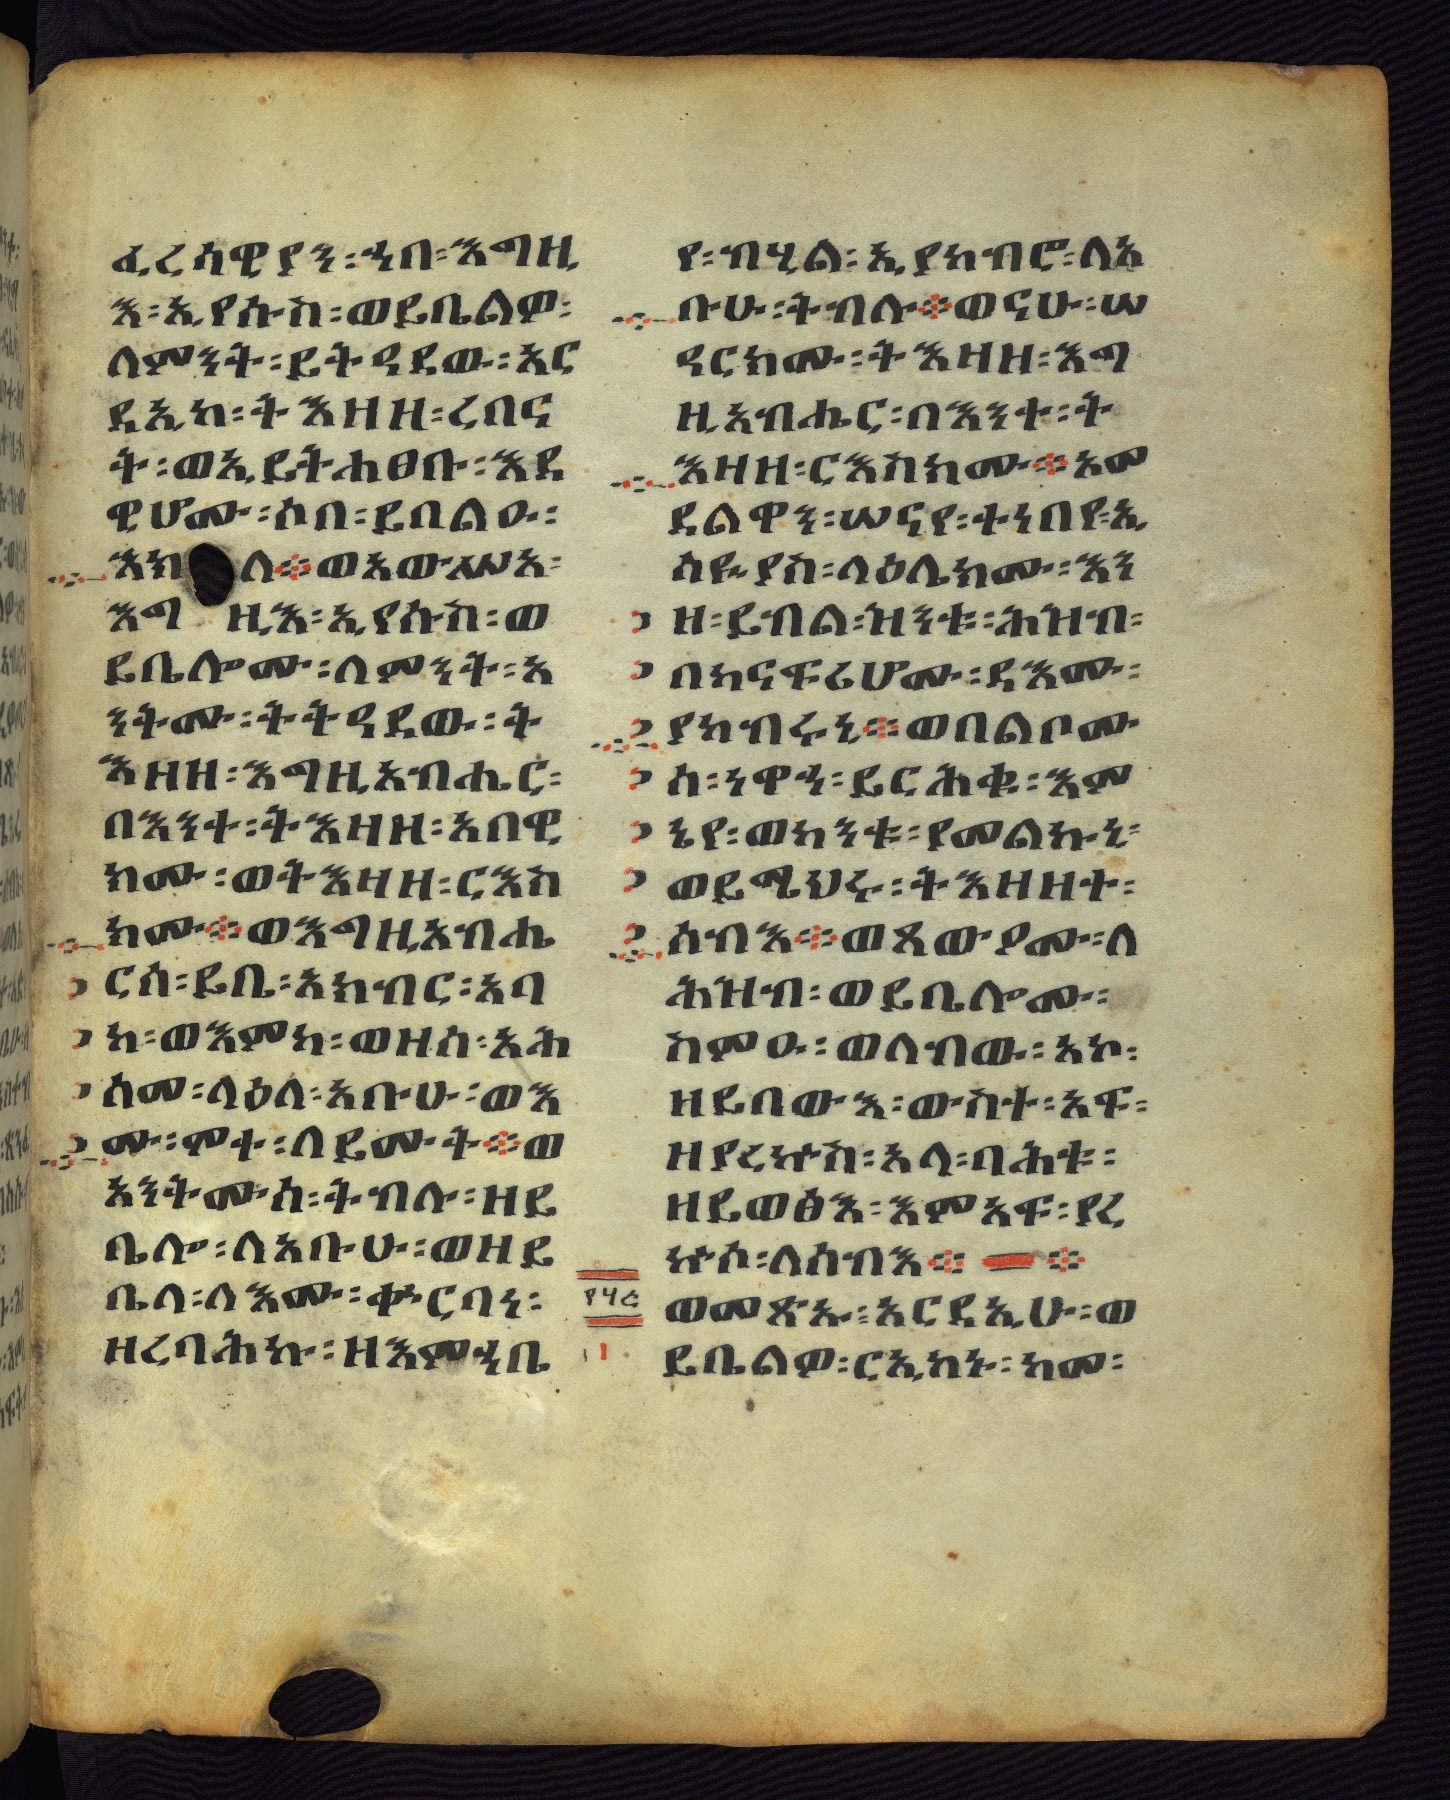 ፈሪሳዊያን፡ኀበ፡እግዚ
እ፡ኢየሱስ፡ወይቤልዎ፡
ለምንት፡ይትዓደው፡አር
ዳኢከ፡ትእዛዘ፡ረበና
ት፡ወኢይትሐፀቡ፡እደ
ዊሆሙ፡ሶበ፡ይበልዑ፡
እክለ፨ወአውሥአ፡
እግዚእ፡ኢየሱስ፡ወ
ይቤሎሙ፡ለምንት፡አ
ንትሙ፡ትትዓደው፡ት
እዛዘ፡እግዚአብሔር፡
በእንተ፡ትእዛዘ፡አበዊ
ክሙ፡ወትእዛዘ፡ርእስ
ክሙ፨ወእግዚአብሔ
ርሰ፡ይቤ፡አክብር፡አባ
ከ፡ወእምከ፡ወዘሰ፡አሕ
ሰመ፡ላዕለ፡አቡሁ፡ወእ
ሙ፡ሞተ፡ለይሙት፨ወ
አንትሙሰ፡ትብሉ፡ዘይ
ቤሎ፡ለአቡሁ፡ወዘይ
ቤላ፡ለእሙ፡ቍርባነ፡
ዘረባሕኩ፡ዘእምኀቤ
የ፡ብሂል፡ኢያከብሮ፡ለአ
ቡሁ፡ትብሉ፨ወናሁ፡ሠ
ዓርክሙ፡ትእዛዘ፡እግ
ዚአብሔር፡በእንተ፡ት
እዛዘ፡ርእስክሙ፨አመ
ደልዋን፡ሠናየ፡ተነበየ፡ኢ
ሰይያስ፡ላዕሌክሙ፡እን
ዘ፡ይብል፡ዝንቱ፡ሕዝብ፡
በከናፍሪሆሙ፡ዳእሙ፡
ያከብሩኒ፨ወበልቦሙ
ሰ፡ነዋኀ፡ይርሕቁ፡እም
ኔየ፡ወከንቱ፡ያመልኩኒ፡
ወይሜህሩ፡ትእዛዘተ፡
ሰብእ፨ወጸውዖሙ፡ለ
ሕዝብ፡ወይቤሎሙ፡
ስምዑ፡ወለብው፡አኮ፡
ዘይበውእ፡ውስተ፡አፍ፡
ዘያረኵስ፡አላ፡ባሕቱ፡
ዘይወፅእ፡እምአፍ፡ያረ
ኵሶ፡ለሰብእ፨ ፨
፻፶፭
ወመጽኡ፡አርዳኢሁ፡ወ
፩
ይቤልዎ፡ርኢከኑ፡ከመ፡